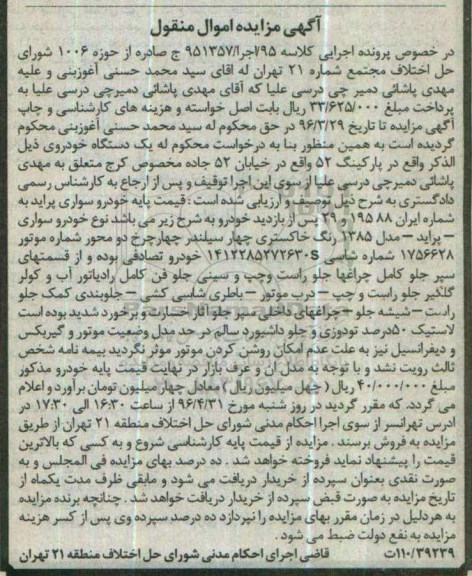 آگهی مزایده اموال منقول
در خصوص پرونده اجرایی کلاسه ۹۵/اجرا/۹۵۱۳۵۷ ج صادره از حوزه ۱۰۰۶ شورای
حل اختلاف مجتمع شماره ۲۱ تهران له اقای سید محمد حسنی آغوزبنی و علیه
مهدی پاشائی دمیر چی درسی علیا که آقای مهدی پاشائی دمیرچی درسی علیا به
پرداخت مبلغ ۳۳/۶۲۵/۰۰۰ ریال بابت اصل خواسته و هزینه های کارشناسی و چاپ
آگهی مزایده تا تاریخ ۹۶/۳/۲۹ در حق محکوم له سید محمد حسنی آغوزبنی محکوم
گردیده است به همین منظور بنا به درخواست محکوم له یک دستگاه خودروی ذیل
الذکر واقع در پارکینگ ۵۲ واقع در خیابان ۵۲ جاده مخصوص کرج متعلق به مهدی
پاشائی دمیرچی درسی علیا از سوی این اجرا توقیف و پس از ارجاع به کارشناس رسمی
دادگستری به شرح ذیل توصیف و ارزیابی شده است : قیمت پایه خودرو سواری پراید به
شماره ایران ۸۸ ۱۹۵ و ۲۹ پس از بازدید خودرو به شرح زیر می باشد نوع خودرو سواری
– پراید – مدل ۱۳۸۵ رنگ خاکستری چهار سیلندر چهارچرخ دو محور شماره موتور
۱۷۵۶۶۲۸ شماره شاسی S۱۴۱۲۲۸۵۲۷۲۶۳۰ خودرو تصادفی بوده و از قسمتهای
سپر جلو کامل چراغها جلو راست وچپ و سینی جلو فن کامل رادیاتور آب و کولر
گلگیر جلو راست و چپ – درب موتور – باطری شاسی کشی – جلوبندی کمک جلو
راست – شیشه جلو – چراغهای داخلی سپر جلو آثار خسارت و برخورد شدید بوده است
لاستیک ۵۰درصد تودوزی و جلو داشبورد سالم در حد مدل وضعیت موتور و گیربکس
و دیفرانسیل نیز به علت عدم امکان روشن کردن موتور موثر نگردید بیمه نامه شخص
ثالث رویت نشد و با توجه به مدل آن و عرف بازار در نهایت قیمت پایه خودرو مذکور
مبلغ ۴۰/۰۰۰/۰۰۰ ریال ( چهل میلیون ریال ) معادل چهار میلیون تومان برآورد و اعلام
می گردد. که مقرر گردید در روز شنبه مورخ ۹۶/۴/۳۱ از ساعت ۱۶:۳۰ الی ۱۷:۳۰ در
ادرس تهرانسر از سوی اجرا احکام مدنی شورای حل اختلاف منطقه ۲۱ تهران از طریق
مزایده به فروش برسند . مزایده از قیمت پایه کارشناسی شروع و به کسی که بالاترین
قیمت را پیشنهاد نماید فروخته خواهد شد . ده درصد بهای مزایده فی المجلس و به
صورت نقدی بعنوان سپرده از خریدار دریافت می شود و مابقی ظرف مدت یکماه از
تاریخ مزایده به صورت قبض سپرده از خریدار دریافت خواهد شد . چنانچه برنده مزایده
به هردلیل در زمان مقرر بهای مزایده را نپردازد ده درصد سپرده وی پس از کسر هزینه
مزایده به نفع دولت ضبط می شود .
۱۱۰/۳۹۲۳۹ت قاضی اجرای احکام مدنی شورای حل اختلاف منطقه ۲۱ تهران